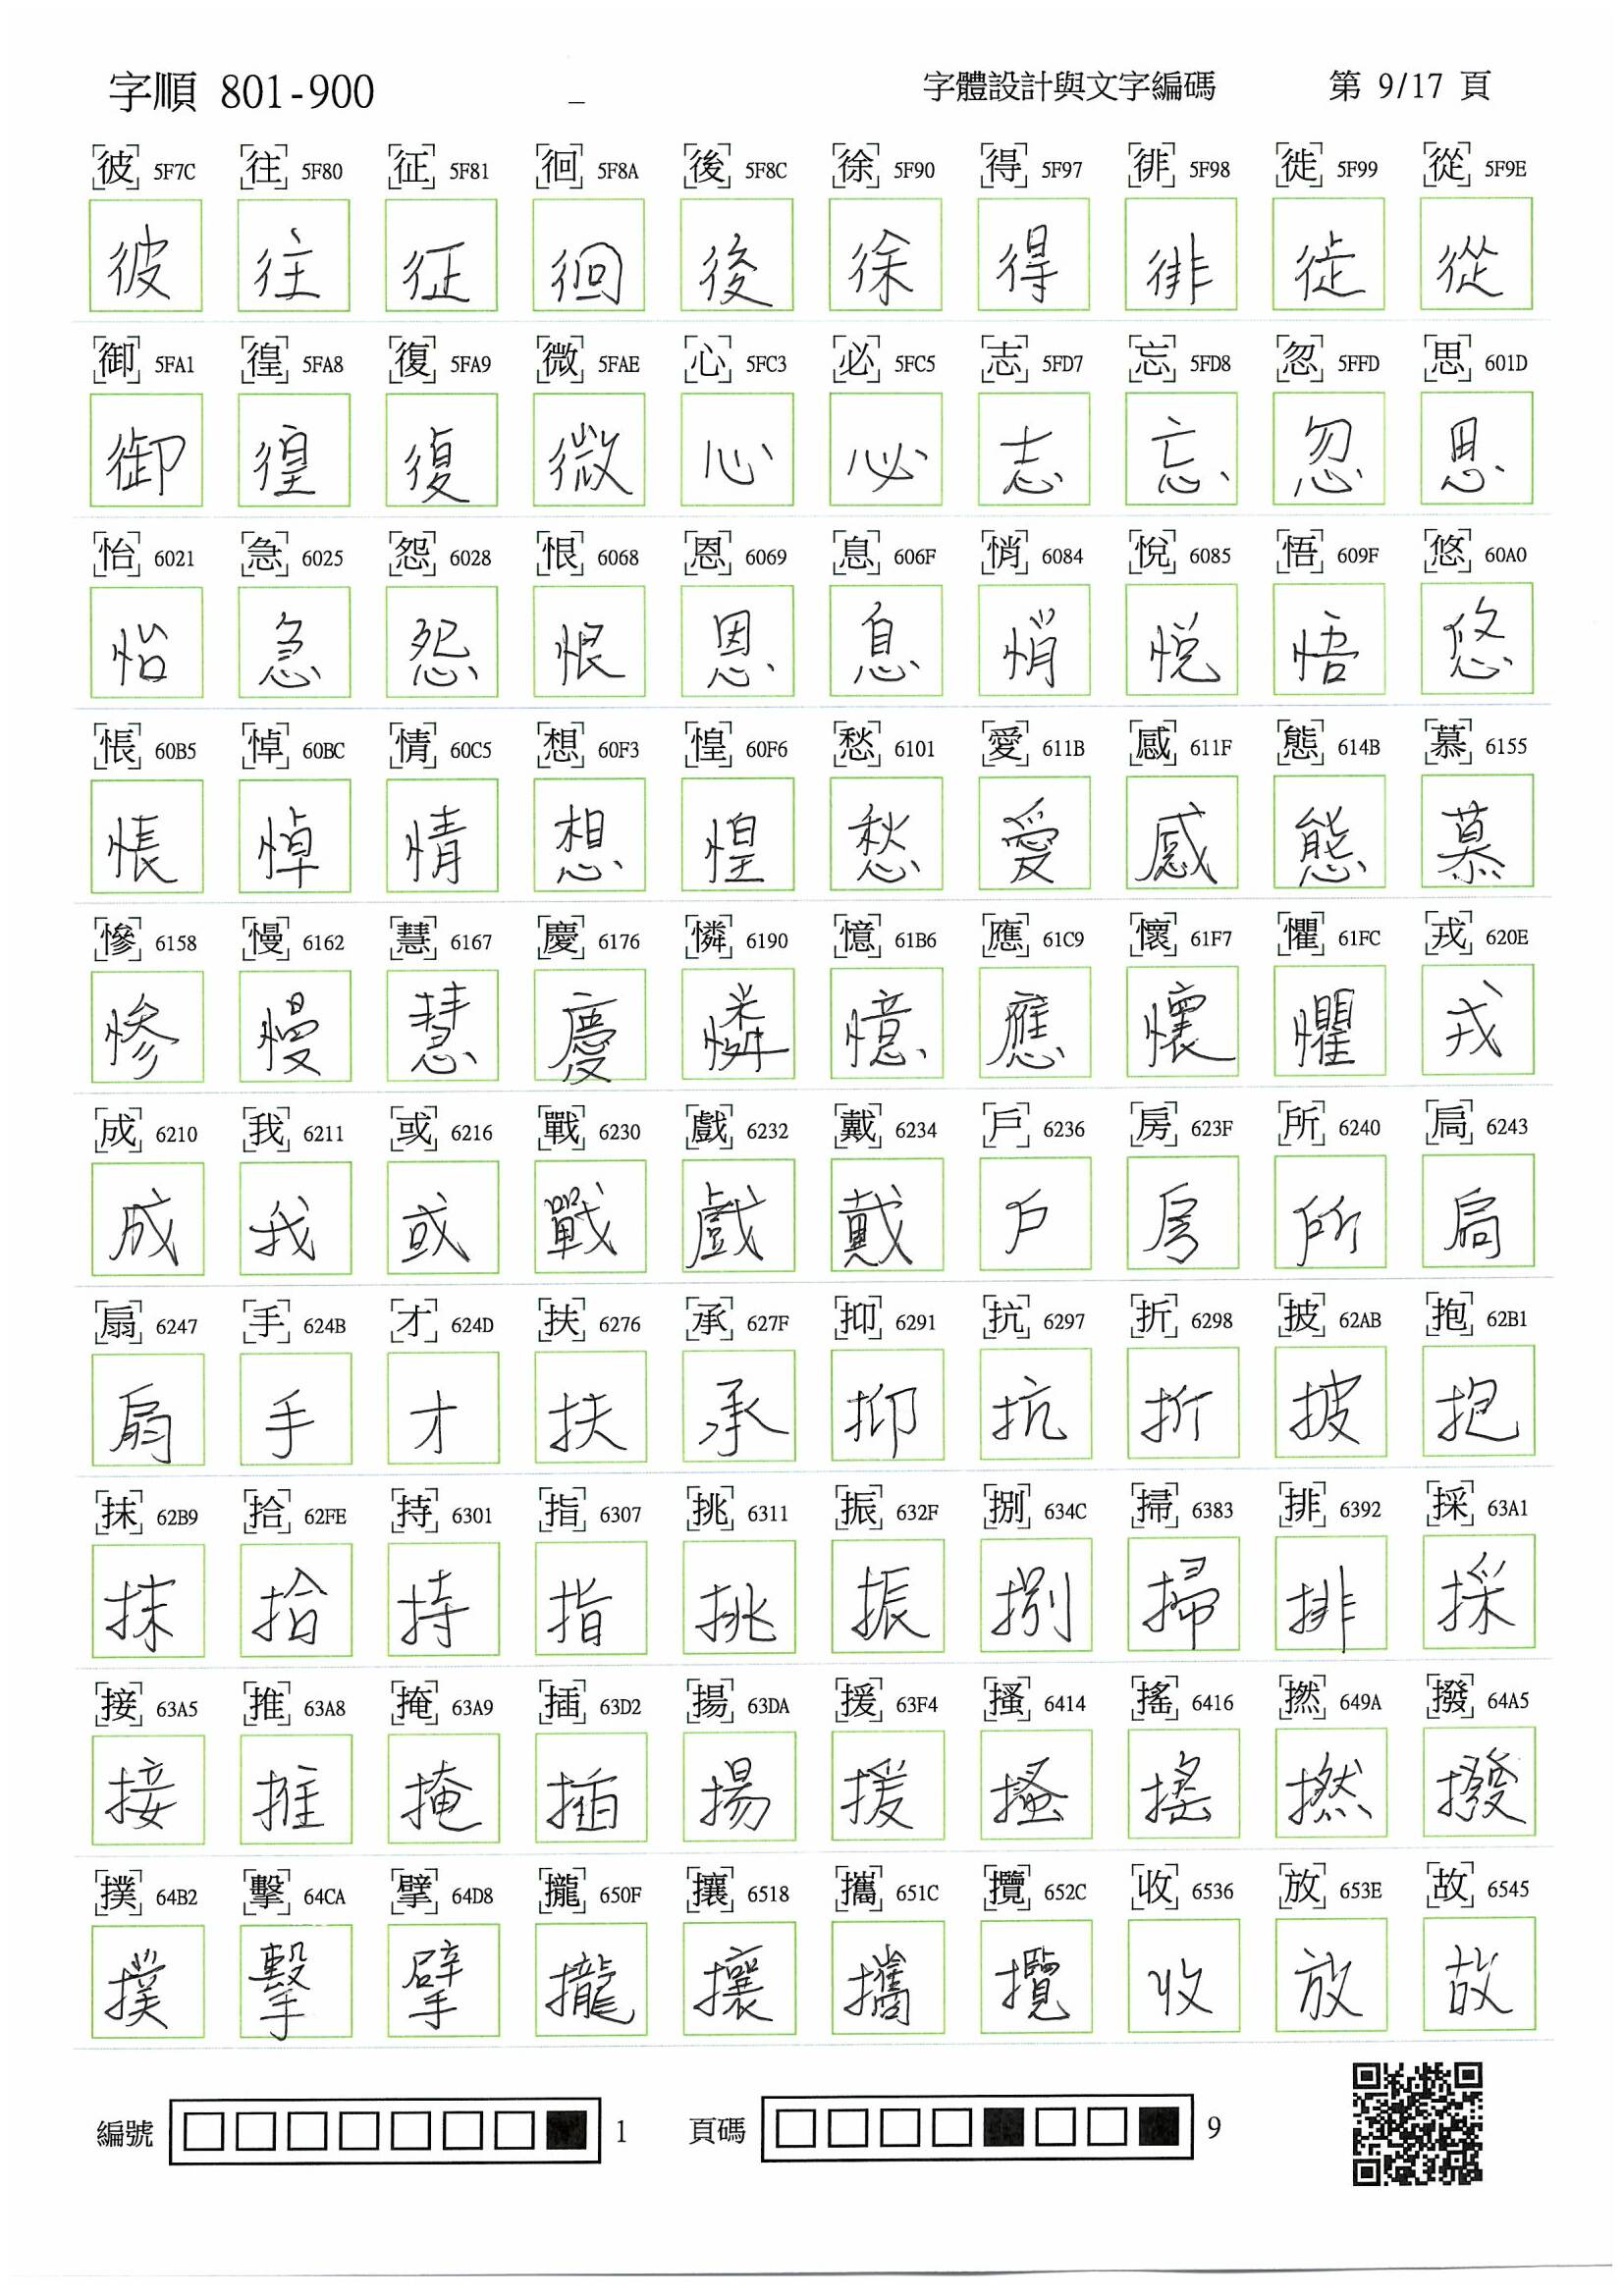 字順 801-900 – 字體設計與文字編碼 第 9/17 頁
彼 5F7C 往 5F80 征 5F81 徊 5F8A 後 5F8C 徐 5F90 得 5F97 徘 5F98 徙 5F99 從 5F9E
彼 往 征 徊 後 徐 得 徘 徙 從
御 5FA1 徨 5FA8 復 5FA9 微 5FAE 心 5FC3 必 5FC5 志 5FD7 忘 5FD8 忽 5FFD 思 601D
御 徨 復 微 心 必 志 忘 忽 思
怡 6021 急 6025 怨 6028 恨 6068 恩 6069 息 606F 悄 6084 悅 6085 悟 609F 悠 60A0
怡 急 怨 恨 恩 息 悄 悅 悟 悠
悵 60B5 悼 60BC 情 60C5 想 60F3 惶 60F6 愁 6101 愛 611B 感 611F 態 614B 慕 6155
悵 悼 情 想 惶 愁 愛 感 態 慕
慘 6158 慢 6162 慧 6167 慶 6176 憐 6190 憶 61B6 應 61C9 懷 61F7 懼 61FC 戎 620E
慘 慢 慧 慶 憐 憶 應 懷 懼 戎
成 6210 我 6211 或 6216 戰 6230 戲 6232 戴 6234 戶 6236 房 623F 所 6240 扃 6243
成 我 或 戰 戲 戴 戶 房 所 扃
扇 6247 手 624B 才 624D 扶 6276 承 627F 抑 6291 抗 6297 折 6298 披 62AB 抱 62B1
扇 手 才 扶 承 抑 抗 折 披 抱
抹 62B9 拾 62FE 持 6301 指 6307 挑 6311 振 632F 捌 634C 掃 6383 排 6392 採 63A1
抹 拾 持 指 挑 振 捌 掃 排 採
接 63A5 推 63A8 掩 63A9 插 63D2 揚 63DA 援 63F4 搔 6414 搖 6416 撚 649A 撥 64A5
接 推 掩 插 揚 援 搔 搖 撚 撥
撲 64B2 擊 64CA 擘 64D8 攏 650F 攘 6518 攜 651C 攬 652C 收 6536 放 653E 故 6545
撲 擊 擘 攏 攘 攜 攬 收 放 故
編號 1 頁碼 9